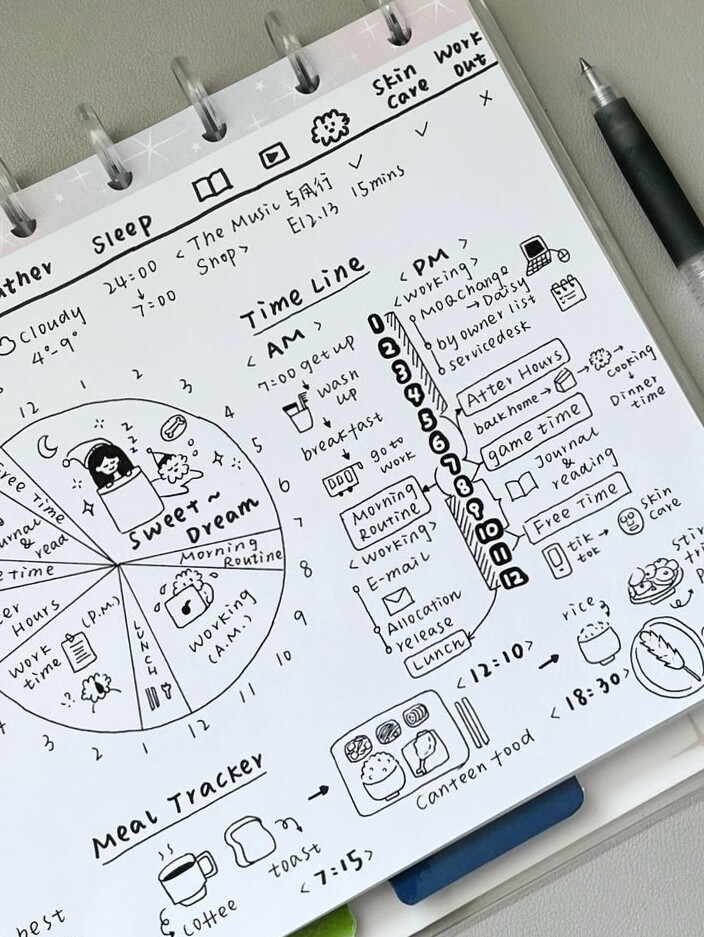 Sleep
Skin
Care
Work
out
24:00
↓
7:00
<The Music
Shop>
E12.13
15mins
✓
✓
×
Cloudy
4°-9°
Time Line
<AM>
7:00 get up
wash
up
breakfast
go to
work
Morning
Routine
<working>
E-mail
Allocation
release
Lunch
<PM>
<working>
→ Daisy
by owner list
servicedesk
1
2
3
4
5
6
7
8
9
10
11
12
After Hours
back home → → cooking
Dinner
time
game time
Journal
&
reading
Free Time
tik
tok
→
skin
care
12
1
2
3
4
5
6
7
8
9
10
11
12
1
2
3
Free Time
& read
Hours
Sweet~
Dream
Morning
Routine
working
(A.M.)
LUNCH
work
time
(P.M.)
Meal Tracker
coffee
toast
<7:15>
→
canteen food
<12:10>
→
rice
<18:30>
best